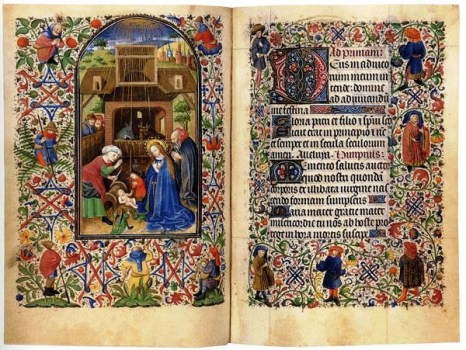 Ad primam:
Deus in adiuto
rium meum in
tende: domine
ad adiuuandū
me festina
Gloria patri et filio & spūi sco
Sicut erat in principio & nūc
et semper et in secula seculorum
amen. Alleluya Hympnus:
Memento salutis auctor
quod nostri quondā
corporis ex illibata uirgine nas
cendo formam sumpseris
Maria mater gratie mater
misericordie tu nos ab hoste pro
tege in hora mortis suscipe